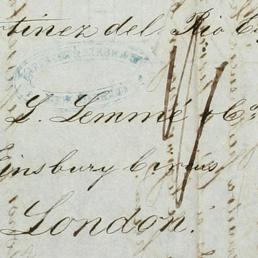 tinez del Rio
L. Lemmé & Co.
Finsbury Circus
London.